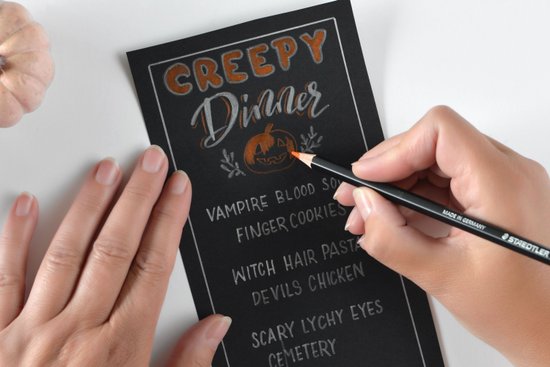 CREEPY
Dinner
VAMPIRE BLOOD
FINGER COOKIES
WITCH HAIR PASTA
DEVILS CHICKEN
SCARY LYCHY EYES
CEMETERY
MADE IN GERMANY
STAEDTLER